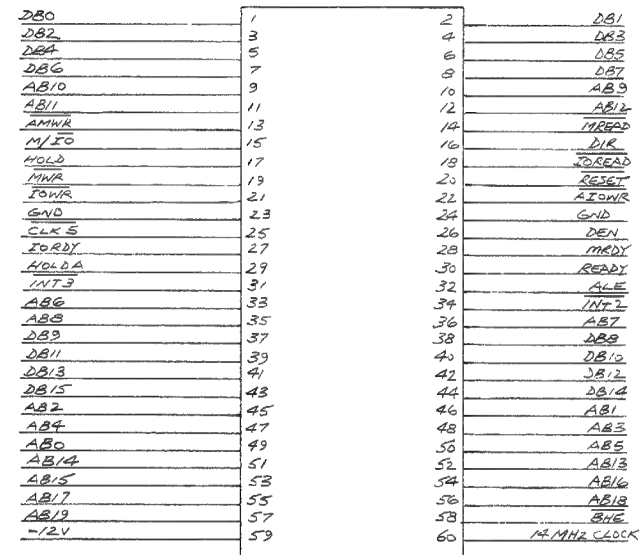 DB0 1 2 DB1
DB2 3 4 DB3
DB4 5 6 DB5
DB6 7 8 DB7
AB10 9 10 AB9
AB11 11 12 AB12
A̅M̅W̅R̅ 13 14 M̅R̅E̅A̅D̅
M/I̅O̅ 15 16 DIR
HOLD 17 18 I̅O̅R̅E̅A̅D̅
M̅W̅R̅ 19 20 R̅E̅S̅E̅T̅
I̅O̅W̅R̅ 21 22 A̅I̅O̅W̅R̅
GND 23 24 GND
C̅L̅K̅ 5̅ 25 26 DEN
IORDY 27 28 MRDY
HOLDA 29 30 READY
I̅N̅T̅3̅ 31 32 ALE
AB6 33 34 I̅N̅T̅2̅
AB8 35 36 AB7
DB9 37 38 DB8
DB11 39 40 DB10
DB13 41 42 DB12
DB15 43 44 DB14
AB2 45 46 AB1
AB4 47 48 AB3
AB0 49 50 AB5
AB14 51 52 AB13
AB15 53 54 AB16
AB17 55 56 AB18
AB19 57 58 B̅H̅E̅
-12V 59 60 14 MHZ CLOCK